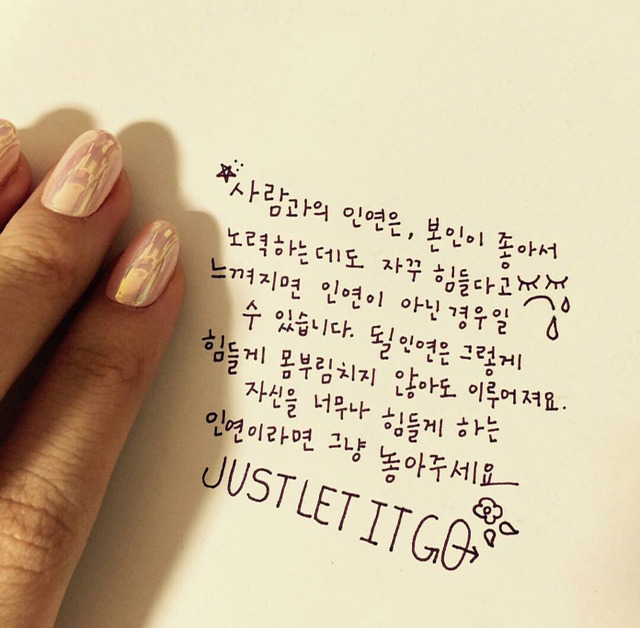 사람과의 인연은, 본인이 좋아서
노력하는데도 자꾸 힘들다고
느껴지면 인연이 아닌 경우일
수 있습니다. 될인연은 그렇게
힘들게 몸부림치지 않아도 이루어져요.
자신을 너무나 힘들게 하는
인연이라면 그냥 놓아주세요
JUST LET IT GO